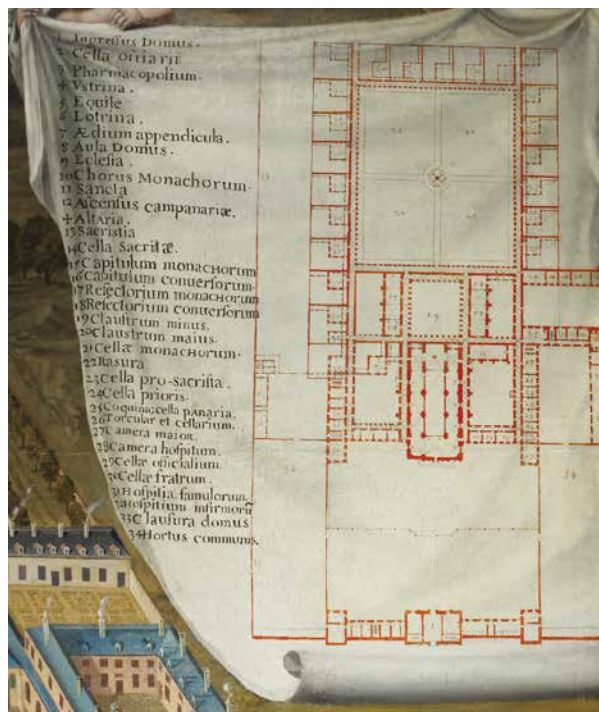 1 Ingressus Domus.
2 Cella ostiarii
3 Pharmacopolium.
4 Vstrina.
5 Equile
6 Lotrina.
7 Ædium appendicula.
8 Aula Domus.
9 Eclesia.
10 Chorus Monachorum.
11 Sancta
12 Ascensus campanariæ.
+ Altaria.
13 Sacristia
14 Cella Sacristæ.
15 Capitulum monachorum
16 Capitulum conuersorum.
17 Refectorium monachorum
18 Refectorium conuersorum
19 Claustrum minus.
20 Claustrum maius.
21 Cellæ monachorum.
22 Rasura
23 Cella pro-sacrista.
24 Cella prioris.
25 Coquina; cella panaria.
26 Torcular et cellarium.
27 Camera maior.
28 Camera hospitum.
29 Cellæ officialium.
30 Cellæ fratrum.
31 Hospitia famulorum.
32 Hospitium infirmorū
33 Clausura domus
34 Hortus communis.
19
34